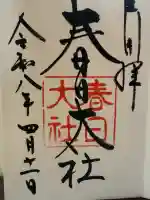 奉拝
春日大社
春日大社
令和八年四月十一日